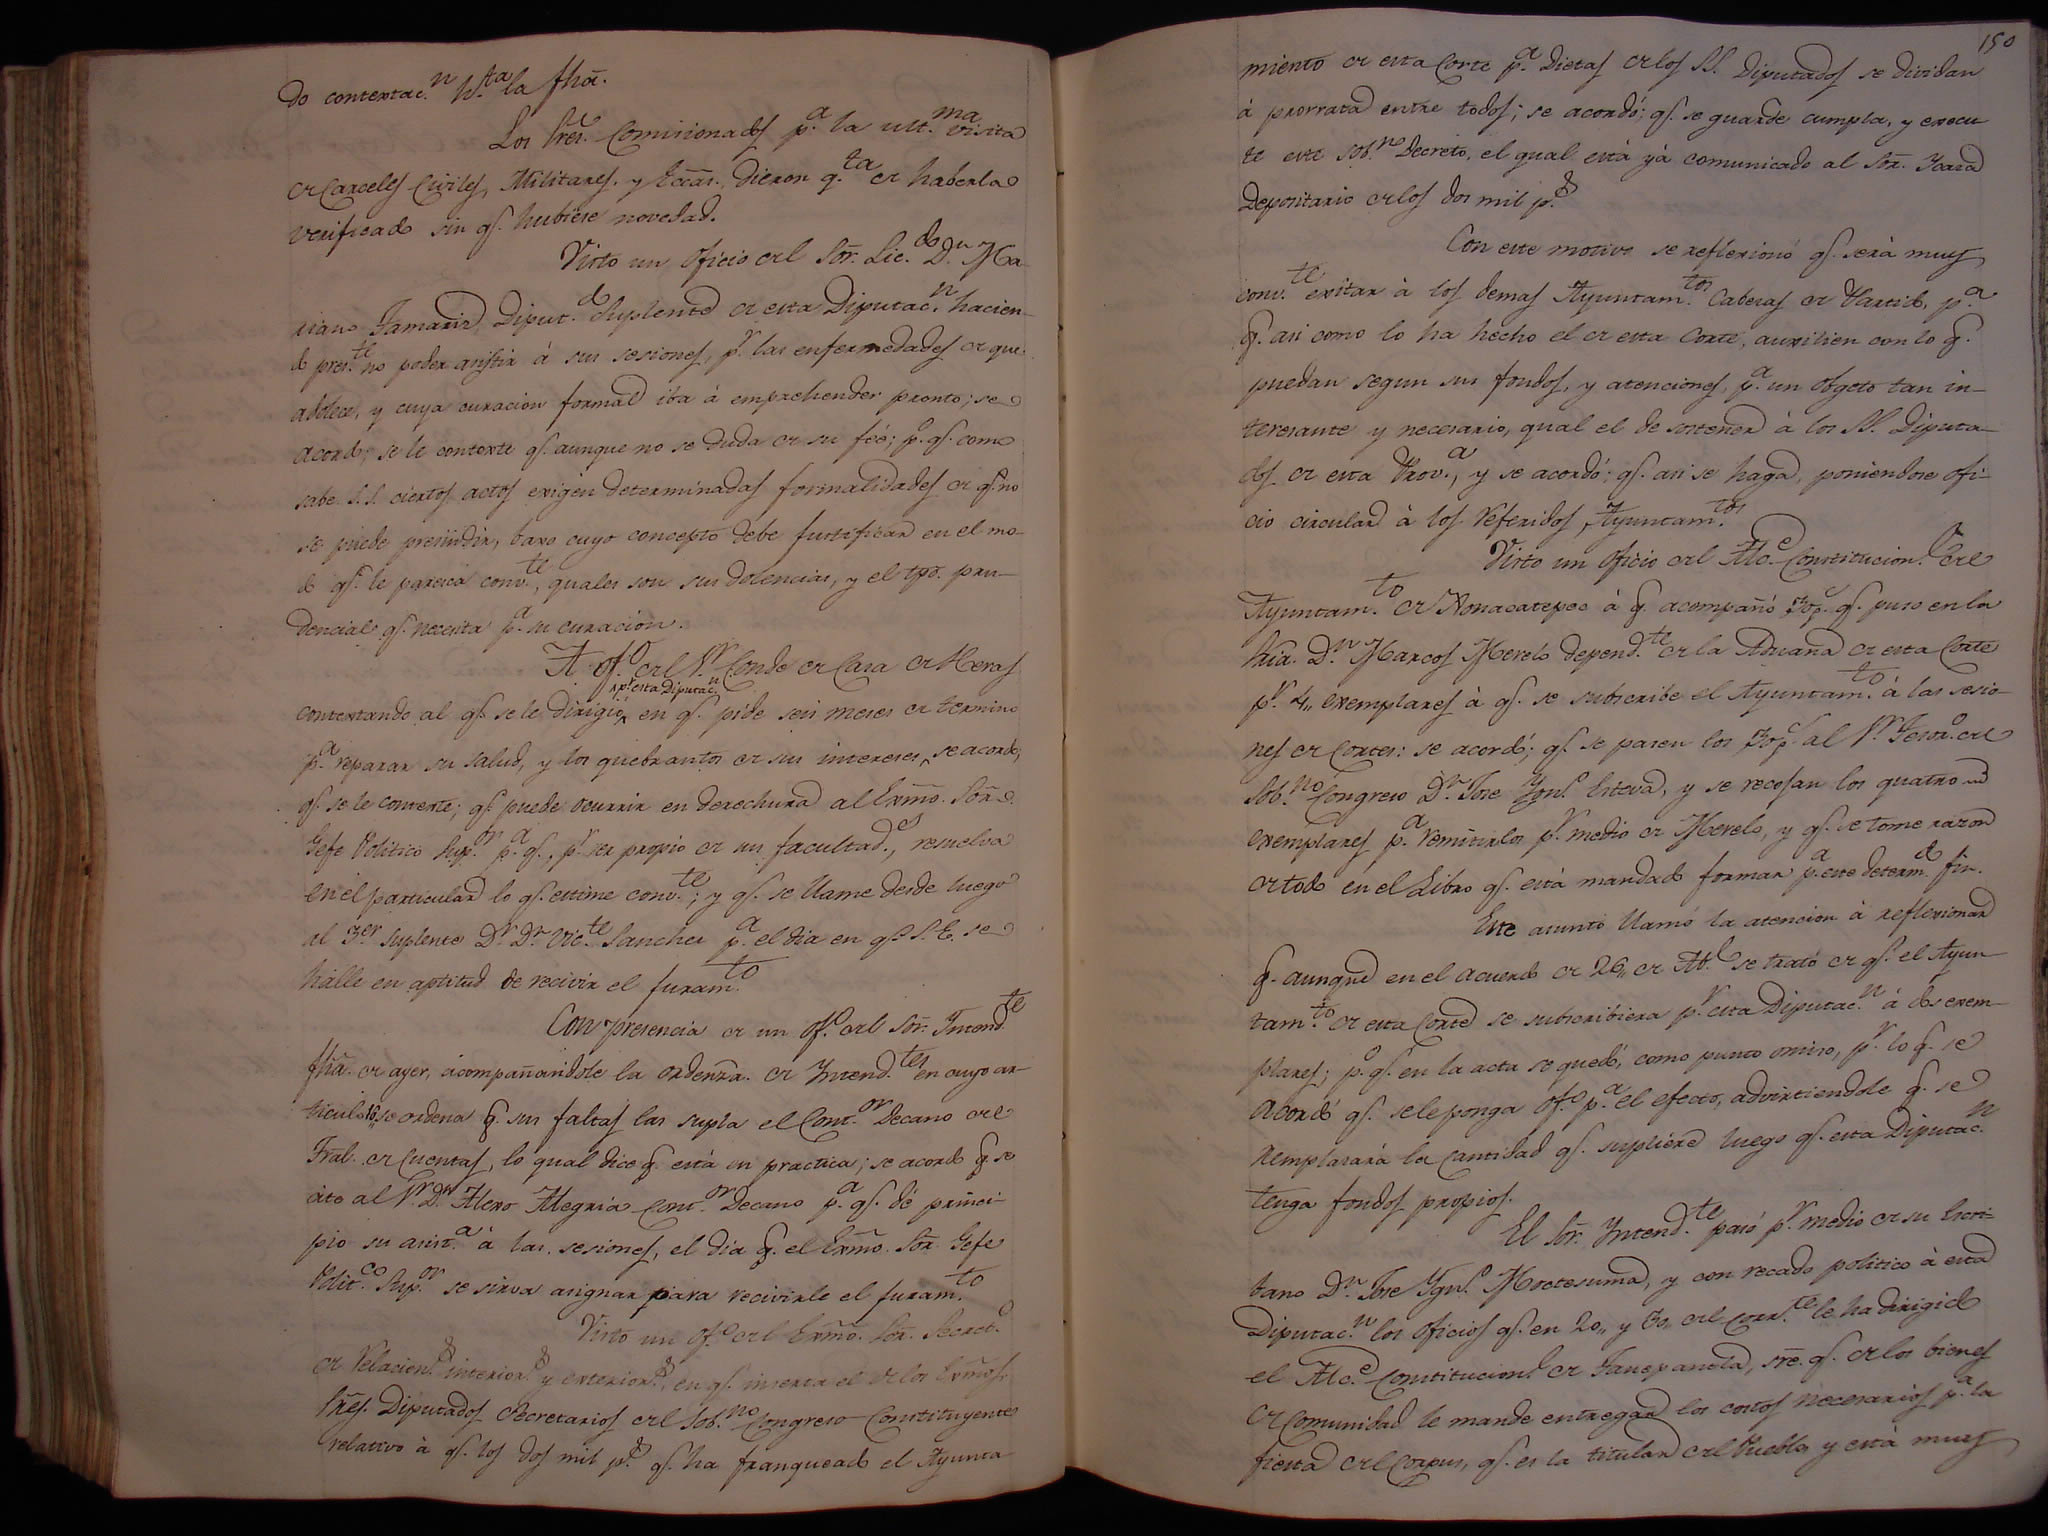 do contextac.n h.sta la fhã.
Los Sres. Comisionados p.a la ult.ma visita
de Carceles Civiles, Militares, y Eccãs. dieron q.ta de haberla
verificado sin qe. hubiese novedad.
Visto un oficio del Sor. Lic.do D.n Ma-
riano Tamariz, Diput.do Suplente de esta Diputac.n hacien-
do pres.te no poder asistir á sus sesiones, p.r las enfermedades de que
adolece, y cuya curacion formal iba á emprehender pronto; se
acordó; se le contexte qe. aunque no se duda de su feé; p.o qe. como
sabe S.S. ciertos actos exigen determinadas formalidades de qe. no
se puede presindir, baxo cuyo concepto debe justificar en el mo-
do qe. le paresca conv.te, quales son sus dolencias, y el tpõ. pru-
dencial qe. necesita p.a su curación.
A of.o del Sr. Conde de Casa de Heras
p.r esta Diputac.n
contextando al qe. se le dirigió en qe. pide seis meses de termino
p.a reparar su salud, y los quebrantos de sus intereses, se acordó,
qe. se le contexte; qe. puede ocurrir en derechura al Exmõ. Sor.
Gefe Politico Sup.or p.a qe., p.r ser propio de sus facultad.es, resuelva
en el particular lo qe. estime conv.te; y qe. se llame desde luego
al 3er suplente Dr. Dn. Vic.te Sanchez p.a el dia en qe. S.E. se
halle en aptitud de recivir el juram.to
Con presencia de un of.o del Sor. Intend.te
fhã. de ayer, acompañandole la ordenza. de Intend.tes en cuyo ar-
ticulo 16,, se ordena q. sus faltas las supla el Cont.or Decano del
Tral. de Cuentas, lo qual dice q. está en practica; se acordó q. se
cite al Sr. Dn. Alexo Alegria Cont.or Decano p.a qe. dé princi-
pio su asist.a á las sesiones, el dia q. el Exmõ. Sor. Gefe
Polit.co Sup.or se sirva asignar para recivirle el juram.to
Visto un of.o del Exmõ. Sor. Secret.o
de Relacion.s interior.s y exterior.s, en qe. inserta el de los Exmõs.
Sres. Diputados Secretarios del Sob.no Congreso Constituyente
relativo á qe. los dos mil p.s qe. ha franqueado el Ayunta
150
miento de esta Corte p.a Dietas de los SS. Diputados se dividan
á prorrata entre todos; se acordó; qe. se guarde cumpla, y execu
te este Sob.no Decreto, el qual está yá comunicado al Sor. Ycaza
Depositario de los dos mil p.s
Con este motivo se reflexionó qe. será muy
conv.te exitar á los demas Ayuntam.tos Cabezas de Partido, p.a
q. asi como lo ha hecho el de esta Corte, auxilien con lo q.
puedan segun sus fondos, y atenciones, p.a un obgeto tan in-
teresante y necesario, qual el de sostener á los SS. Diputa-
dos de esta Prov.a, y se acordó; qe. asi se haga, poniendose ofi-
cio circular á los referidos Ayuntam.tos
Visto un oficio del Alc.e Constitucion.l del
Ayuntam.to de Xonacatepec á q. acompañó 30 p.s qe. puso en la
Sriã. Dn. Marcos Merelo depend.te de la Aduana de esta Corte
p.r 4,, exemplares á qe. se subscribe el Ayuntam.to á las sesio-
nes de Cortes: se acordó; qe. se pasen los 30 p.s al Sr. Tesor.o del
Sob.no Congreso Dn. Jose Ygn.o Esteva, y se recojan los quatro
exemplares p.a remitirlos p.r medio de Merelo, y qe. se tome razon
de todo en el Libro qe. está mandado formar p.a este determ.do fin.
Este asunto llamó la atencion á reflexionar
q. aunque en el acuerdo de 26,, de Ab.l se trató de qe. el Ayun-
tam.to de esta Corte se subscribiera p.r esta Diputac.n á dos exem-
plares; p.o qe. en la acta se quedó, como punto omiso, p.r lo q. se
acordó qe. se le ponga of.o p.a el efecto, advirtiendole q. se
remplazará la cantidad qe. supliere luego qe. esta Diputac.n
tenga fondos propios.
El Sor. Yntend.te pasó p.r medio de su Escri-
bano Dn. Jose Ygn.o Moctesuma, y con recado politico á esta
Diputac.n los oficios qe. en 20,, y 30,, del corr.te le ha dirigido
el Alc.e Constitucion.l de Tanepantla, sre. qe. de los bienes
de Comunidad le mande entregar los costos necesarios p.a la
fiesta del Corpus, qe. es la titular del Pueblo, y está muy